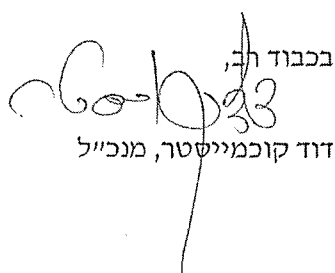 בכבוד רב,
דוד קוכמייסטר, מנכ"ל